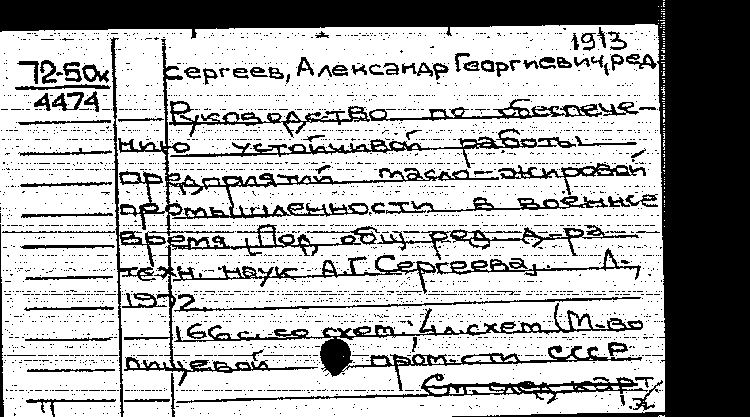 1913
72-50к
4474
Сергеев, Александр Георгиевич, ред.
Руководство по обеспече-
нию устойчивой работы
предприятий масло-жировой
промышленности в военное
время [Под общ. ред. д-ра
техн. наук А.Г. Сергеева]. Л.,
1972.
166 с. со схем.; 4 л. схем. (М-во
пищевой пром-сти СССР
См. след. карт.